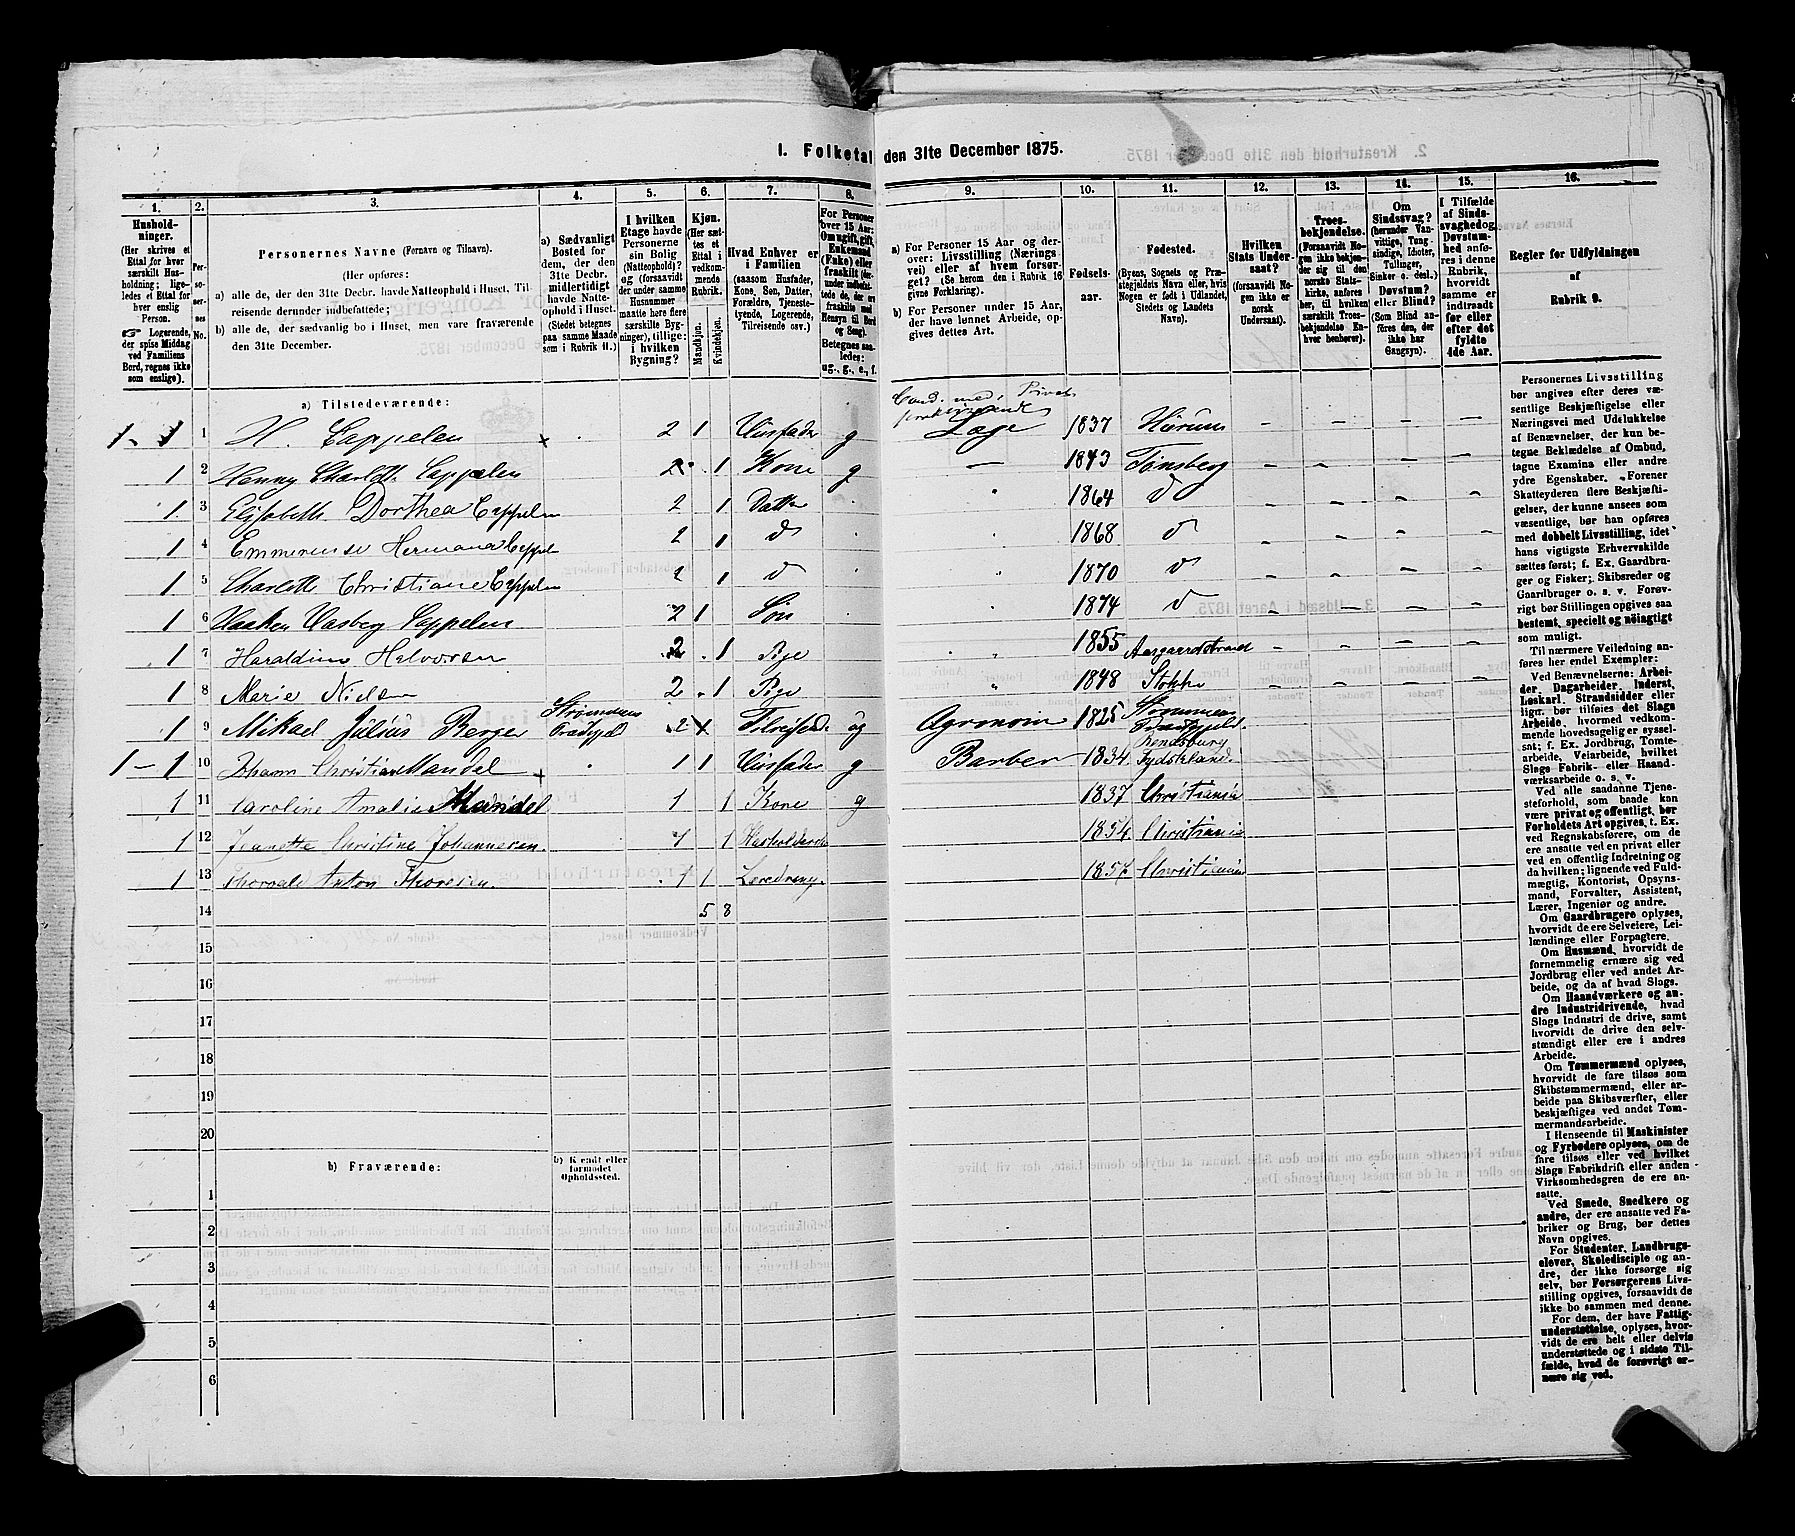 I. Folketal den 31te December 1875.
1.
2.
3.
4.
5.
6.
7.
8.
9.
10.
11.
12.
13.
14.
15.
16.
Husholdninger.
(Her skrives et Ettal for hver særskilt Husholdning; ligeledes et Ettal for hver enslig Person.
☞ Logerende, der spise Middag ved Familiens Bord, regnes ikke som enslige).
Personernes No.
Personernes Navne (Fornavn og Tilnavn).
(Her opføres:
a) alle de, der den 31te Decbr. havde Natteophold i Huset, Tilreisende derunder indbefattede;
b) alle de, der sædvanlig bo i Huset, men vare fraværende den 31te December.
a) Sædvanligt Bosted for dem, der den 31te Decbr. midlertidigt havde Natteophold i Huset.
(Stedet betegnes paa samme Maade som i Rubrik 11.)
I hvilken Etage havde Personerne sin Bolig (Natteophold)? og (forsaavidt der under samme Husnummer maatte høre flere særskilte Bygninger), tillige: i hvilken Bygning?
Kjøn.
(Her sættes et Ettal i vedkommende Rubrik.
Mandkjøn.
Kvindekjøn.
Hvad Enhver er i Familien
(saasom Husfader, Kone, Søn, Datter, Forældre, Tjenestetyende, Logerende, Tilreisende osv.)
For Personer over 15 Aar: Om ugift, gift, Enkemand (Enke) eller fraskilt (derunder indbefattede de, der ere fraskilte med Hensyn til Bord og Seng).
Betegnes saaledes: ug., g., e., f.
a) For Personer 15 Aar og derover: Livsstilling (Næringsvei) eller af hvem forsørget? (Se herom den i Rubrik 16 givne Forklaring).
b) For Personer under 15 Aar, der have lønnet Arbeide, opgives dettes Art.
Fødselsaar.
Fødested.
(Byens, Sognets og Præstegjeldets Navn eller, hvis Nogen er født i Udlandet, Stedets og Landets Navn).
Hvilken Stats Undersaat?
(forsaavidt Nogen ikke er norsk Undersaat).
Troesbekjendelse.
(Forsaavidt Nogen ikke bekjender sig til den norske Statskirke, anføres her, til hvilken særskilt Troesbekjendelse Enhver henhører).
Om Sindssvag? (herunder Vanvittige, Tungsindige, Idioter, Tullinger, Sinker o. desl.) Døvstum? eller Blind? (Som Blind anføres den, der ikke har Gangsyn).
I Tilfælde af Sindssvaghed og Døvstumhed anføres i denne Rubrik, hvorvidt samme er indtraadt før eller efter det fyldte 4de Aar.
Regler for Udfyldningen af Rubrik 9.
a) Tilstedeværende:
1-1 1 H. Cappelen 2 1 Husfader g Cand. med, Privat praktiserende Læge 1837 Hurum - - - -
1 2 Henny Charlotte Cappelen 2 1 Kone g 1843 Tønsberg - - - -
1 3 Elisabeth Dorthea Cappelen 2 1 Datter 1864 d - - - -
1 4 Emmerense Hermana Cappelen 2 1 d 1868 d - - - -
1 5 Charlotte Christiane Cappelen 2 1 d 1870 d - - - -
1 6 Haaken Cappelen 2 1 Søn 1874 d - - - -
1 7 Haraldine Halvorsen 2 1 Pige 1855 Aasgaardstrand - - - -
1 8 Marie Nielsen 2 1 Pige 1848 Stokke - - - -
1 9 Mikael Julius Berger Strømmen 2 Tilreisende ug Agronom 1825 Strømmen
1-1 10 Johann Christian Mandel 1 1 Husfader g Barber 1834 Rendsburg Tydskland.
1 11 Caroline Amalie Mandel 1 1 Kone g 1837 Christiania
1 12 Jeanette Christine Johannesen. 1 1 1854 Christiania
1 13 Thorvald Anton Thoresen. 1 1 Læredreng. 1857 Christiania
14 5 8
15
16
17
18
19
20
b) Fraværende:
b) Kjendt eller formodet Opholdssted.
1
2
3
4
5
6
Personernes Livsstilling bør angives efter deres væsentlige Beskjæftigelse eller Næringsvei med Udelukkelse af Benævnelser, der kun betegne Beklædelse af Ombud, tagne Examina eller andre ydre Egenskaber. Forener Skatteyderen flere Beskjæftigelser, der kunne ansees som væsentlige, bør han opføres med dobbelt Livsstilling, idet hans vigtigste Erhvervskilde sættes først; f. Ex. Gaardbruger og Fisker; Skibsreder og Gaardbruger o. s. v. Forøvrigt bør Stillingen opgives saa bestemt, specielt og nøiagtigt som muligt.
Til nærmere Veiledning anføres her endel Exempler:
Ved Benævnelserne: Arbeider, Dagarbeider, Inderst, Løskarl, Strandsidder eller lign. bør tilføies det Slags Arbeide, hvormed vedkommende hovedsagelig er sysselsat; f. Ex. Jordbrug, Tomtearbeide, Veiarbeide, hvilket Slags Fabrik- eller Haandværksarbeide o. s. v.
Ved alle saadanne Tjenesteforhold, som baade kan være privat og offentligt, bør Forholdets Art opgives, t. Ex. ved Regnskabsførere, om de ere ansatte ved en privat eller ved en offentlig Indretning og da hvilken; lignende ved Fuldmægtig, Kontorist, Opsynsmand, Forvalter, Assistent, Lærer, Ingeniør og andre.
Om Gaardbrugere oplyses, hvorvidt de ere Selveiere, Leilændinge eller Forpagtere.
Om Husmænd, hvorvidt de fornemmelig ernære sig ved Jordbrug eller ved andet Arbeide, og da af hvad Slags.
Om Haandværkere og andre Industridrivende, hvad Slags Industri de drive, samt hvorvidt de drive den selvstændigt eller ere i andres Arbeide.
Om Tømmermænd oplyses, hvorvidt de fare tilsøs som Skibstømmermænd, eller arbeide paa Skibsværfter, eller beskjæftiges ved andet Tømmermandsarbeide.
I Henseende til Maskinister og Fyrbødere oplyses, om de fare tilsøs eller ved hvilket Slags Fabrikdrift eller anden Virksomhedsgren de ere ansatte.
Ved Smede, Snedkere og andre, der ere ansatte ved Fabriker og Brug, bør dettes Navn opgives.
For Studenter, Landbrugselever, Skoledisciple og andre, der ikke forsørge sig selv, bør Forsørgerens Livsstilling opgives, forsaavidt de ikke bo sammen med denne.
For dem, der have Fattigunderstøttelse, oplyses, hvorvidt de ere helt eller delvis understøttede og i sidste Tilfælde, hvad de forøvrigt ernære sig ved.